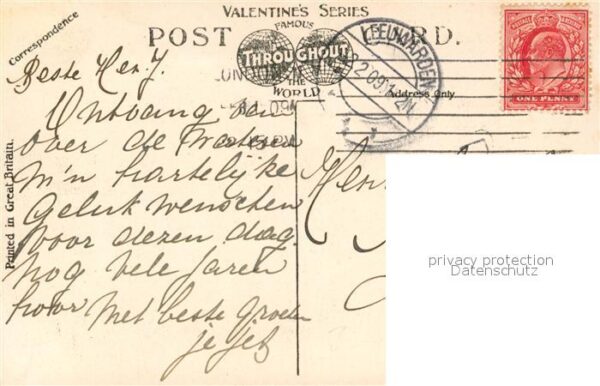 VALENTINE'S SERIES
FAMOUS
THROUGHOUT
THE
WORLD
POST CARD.
Correspondence
Address Only
Printed in Great Britain.
LEEUWARDEN
POSTAGE REVENUE
ONE PENNY
Beste Henj.
Ontvang van
over de
m'n hartelijke
Geluk wenschen
voor dezen dag.
nog vele jaren
hoor Met beste Groeten
je Jet
privacy protection
Datenschutz